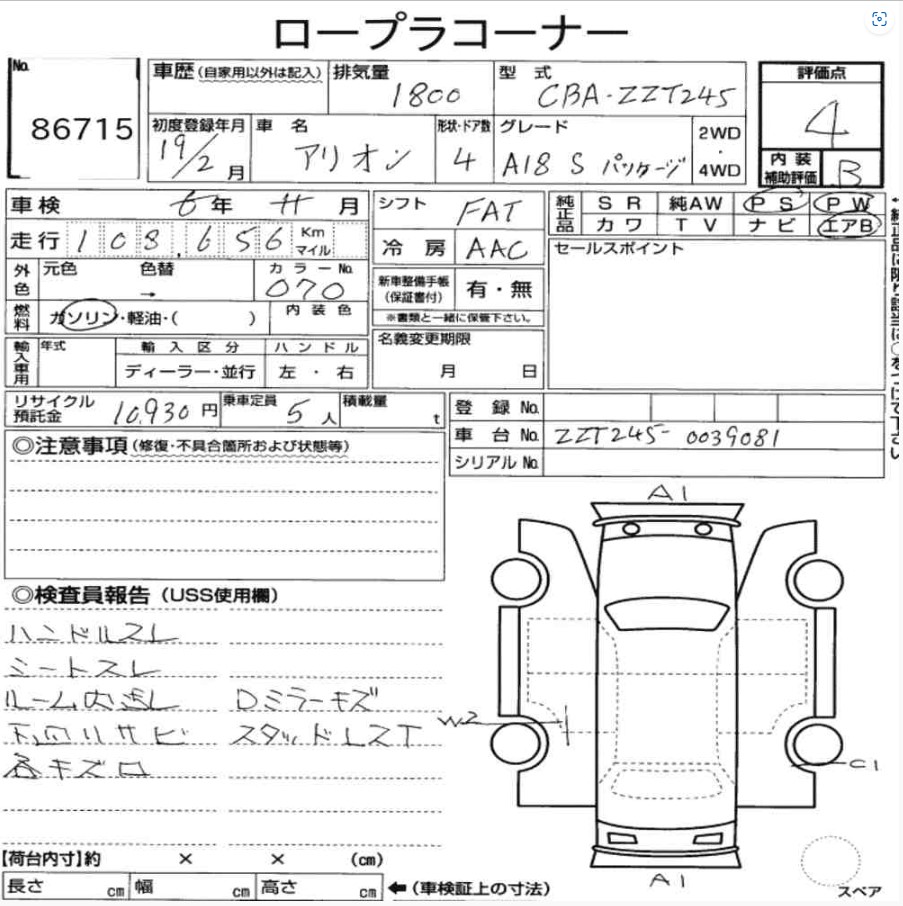 ロープラコーナー
No.
86715
車歴(自家用以外は記入)
排気量
1800
型式
CBA-ZZT245
評価点
4
初度登録年月
19/2月
車名
アリオン
形状・ドア数
4
グレード
A18 S パッケージ
2WD
・
4WD
内装
補助評価
B
車検
6年
月
シフト
FAT
純正品
SR
純AW
PS
PW
カワ
TV
ナビ
エアB
走行
108,656
Km
マイル
冷房
AAC
セールスポイント
外色
元色
色替
→
カラーNo.
070
新車整備手帳
(保証書付)
有・無
※書類と一緒に保管下さい。
燃料
ガソリン・軽油・( )
内装色
名義変更期限
月 日
輸入車用
年式
輸入区分
ディーラー・並行
ハンドル
左・右
リサイクル
預託金
10,930円
乗車定員
5人
積載量
t
登録No.
車台No.
ZZT245-0039081
シリアルNo.
◎注意事項(修復・不具合箇所および状態等)
◎検査員報告(USS使用欄)
ハンドルスレ
シートスレ
ルーム内汚し Dミラーキズ
下回りサビ スタッドレスT
各キズ凹
A1
W2
C1
A1
スペア
【荷台内寸】約 × × (cm)
長さ cm 幅 cm 高さ cm ←(車検証上の寸法)